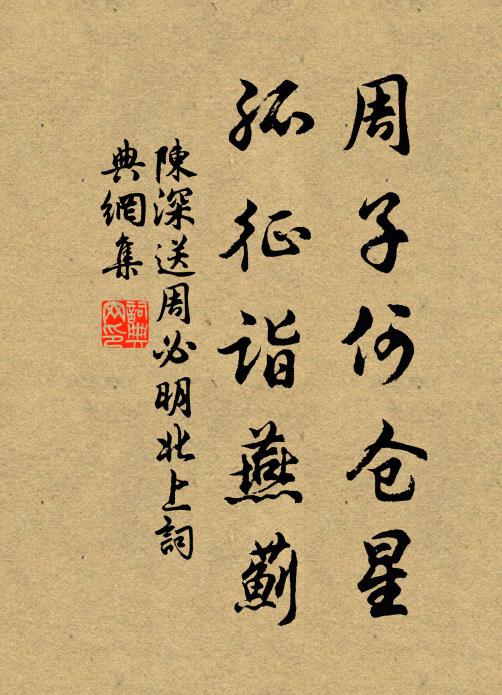 周子何仓星
孤征诣燕蓟
陳深送周必明北上詞
典網集
詞典
网印